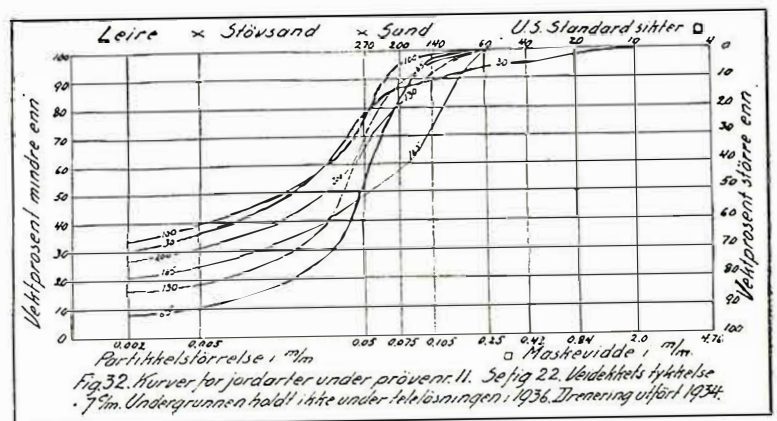 Leire × Stövsand × Sand U.S. Standard sikter □
270 200 140 60 40 20 10 4
Vektprosent mindre enn
100
90
80
70
60
50
40
30
20
10
0
Vektprosent större enn
0
10
20
30
40
50
60
70
80
90
100
100
65
130
30
200
165
100
30
200
165
130
65
0.002 0.005 0.05 0.075 0.105 0.25 0.42 0.84 2.0 4.76
Partikkelstörrelse i m/m □ Maskevidde i m/m.
Fig 32. Kurver for jordarter under prövenr. 11. Se fig 22. Veidekkets tykkelse
7 c/m. Undergrunnen holdt ikke under telelösningen i 1936. Drenering utfört 1934.